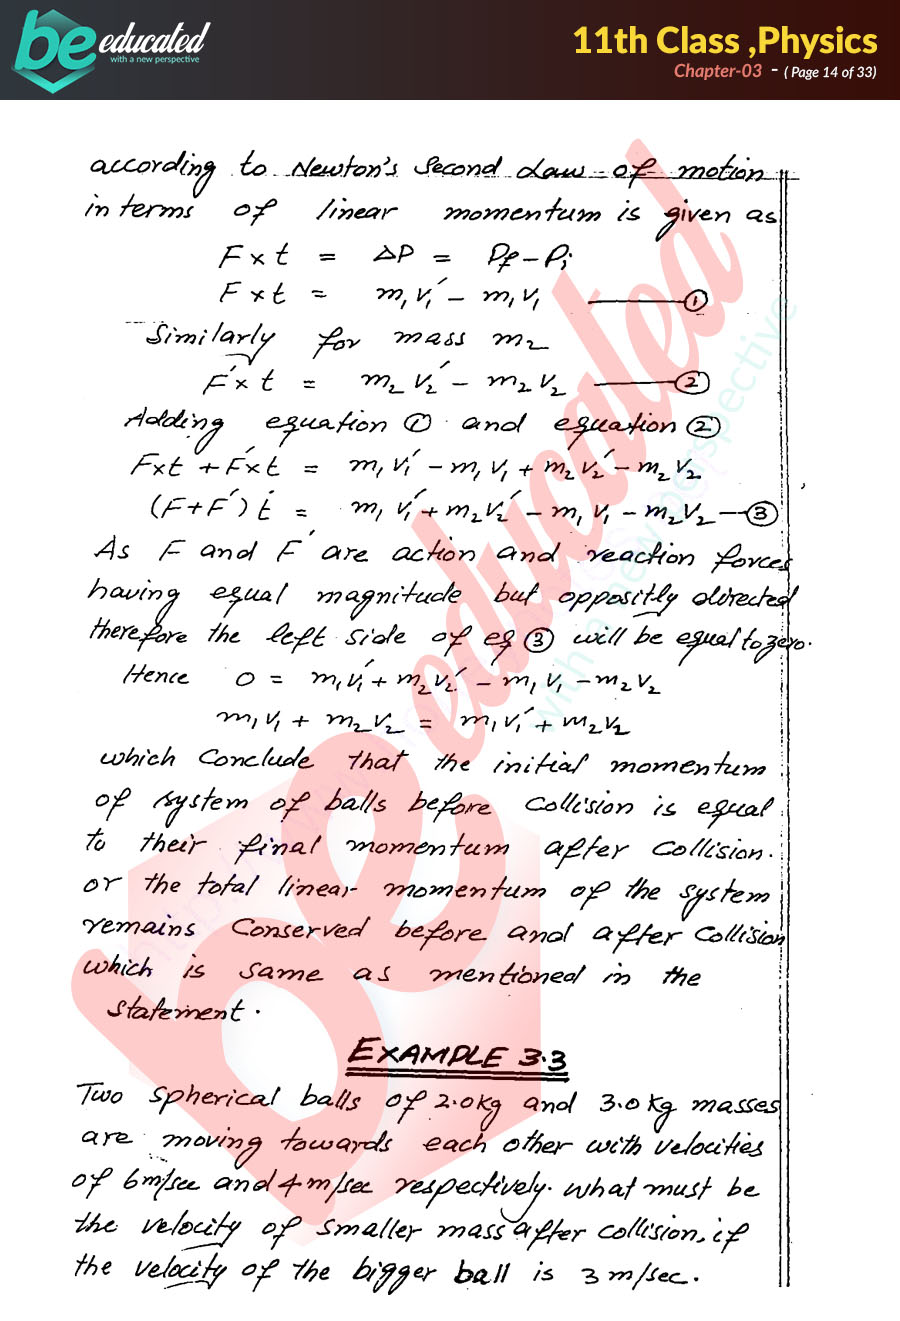 be educated
with a new perspective
11th Class ,Physics
Chapter-03 - ( Page 14 of 33)
according to Newton's Second Law of motion
in terms of linear momentum is given as
F × t = ΔP = Pf - Pi
F × t = m₁v₁′ - m₁v₁ ———①
Similarly for mass m₂
F′× t = m₂v₂′ - m₂v₂ ———②
Adding equation ① and equation ②
F×t + F′×t = m₁v₁′ - m₁v₁ + m₂v₂′ - m₂v₂
(F+F′) t = m₁v₁′ + m₂v₂′ - m₁v₁ - m₂v₂ —③
As F and F′ are action and reaction forces
having equal magnitude but oppositly directed
therefore the left side of eq ③ will be equal to zero.
Hence 0 = m₁v₁′ + m₂v₂′ - m₁v₁ - m₂v₂
m₁v₁ + m₂v₂ = m₁v₁′ + m₂v₂
which Conclude that the initial momentum
of system of balls before collision is equal
to their final momentum after collision.
or the total linear momentum of the system
remains Conserved before and after Collision
which is same as mentioned in the
statement.
EXAMPLE 3.3
Two spherical balls of 2.0kg and 3.0kg masses
are moving towards each other with velocities
of 6m/sec and 4m/sec respectively. What must be
the velocity of smaller mass after collision, if
the velocity of the bigger ball is 3m/sec.
be educated
with a new perspective